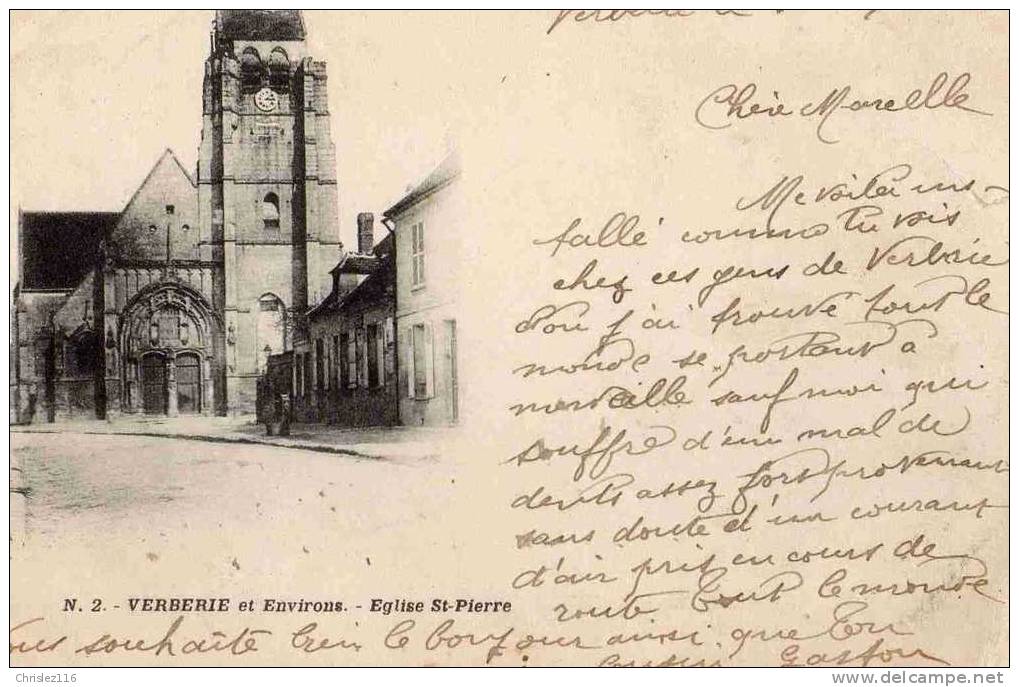 Verberie le
Chère Marcelle
Me voilà ins-
tallé comme tu vois
chez ces gens de Verberie
d'où j'ai trouvé tout le
monde se portant à
merveille sauf moi qui
souffre d'un mal de
dents assez fort provenant
sans doute d'un courant
d'air pris en cours de
route tout le monde
N. 2. - VERBERIE et Environs. - Eglise St-Pierre
vous souhaite bien le bonjour ainsi que ton
cousin Gaston
Chrislez116
www.delcampe.net